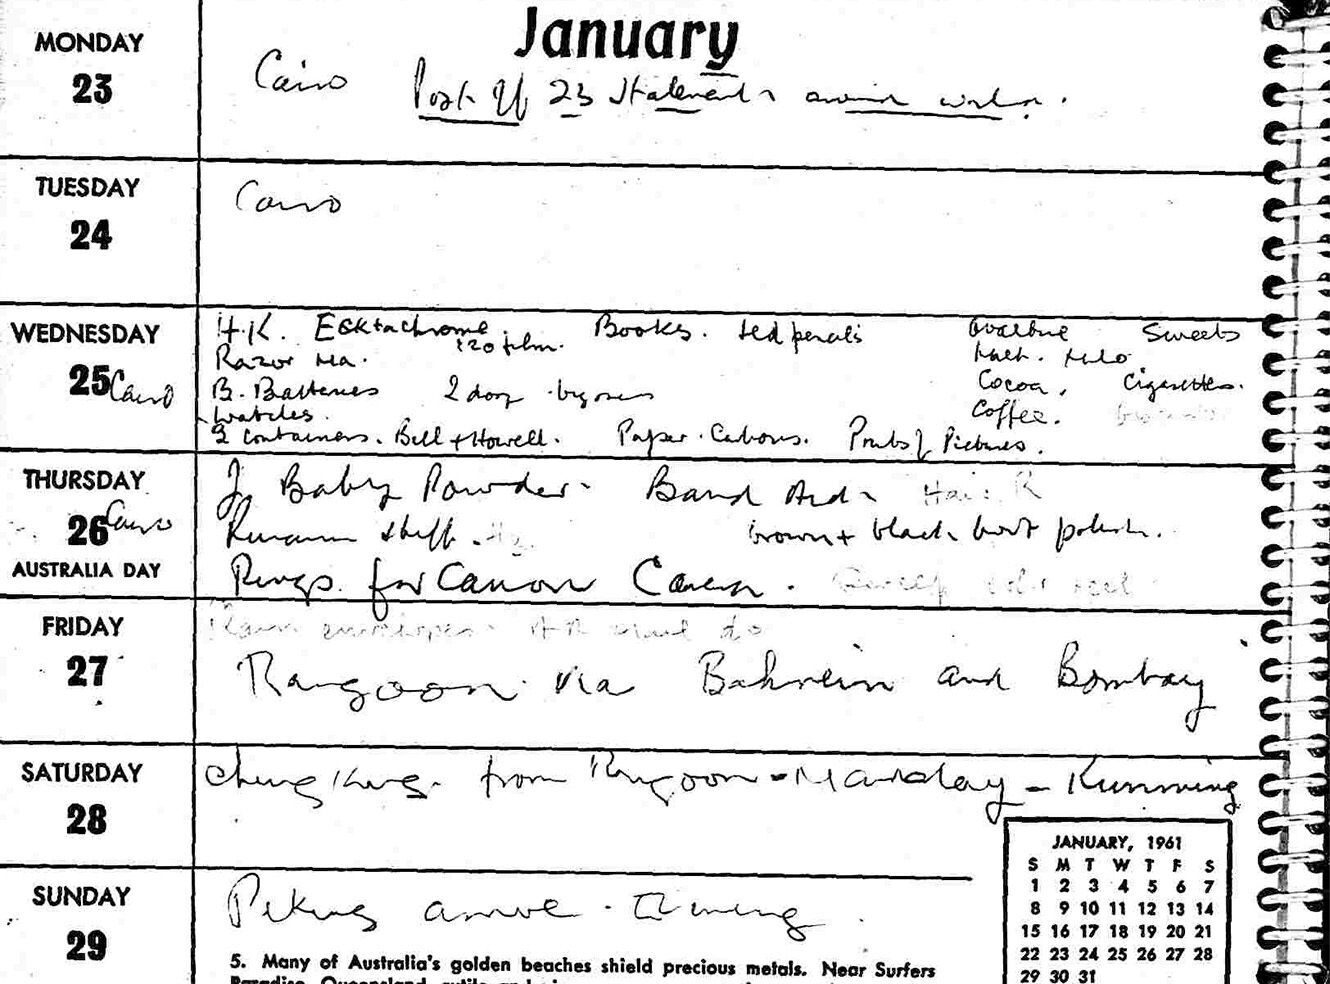 January
MONDAY
23
Cairo Post 23 Statements
TUESDAY
24
Cairo
WEDNESDAY
25 Cairo
H.K. Ecktachrome Books. red pencils Ovaltine Sweets
120 film.
Razor Milo
B. Batteries 2 doz biros Cocoa, Cigarettes.
watches. Coffee.
2 containers. Bell + Howell. Paper. Carbons. Pictures.
THURSDAY
26 Cairo
AUSTRALIA DAY
J Baby Powder. Band Aids Hair
stuff. brown + black boot polish.
Rings for Canon Camera.
FRIDAY
27
Plain envelopes.
Rangoon via Bahrein and Bombay
SATURDAY
28
Chungking. from Rangoon - Mandalay - Kunming
SUNDAY
29
Peking arrive. Evening.
JANUARY, 1961
S M T W T F S
1 2 3 4 5 6 7
8 9 10 11 12 13 14
15 16 17 18 19 20 21
22 23 24 25 26 27 28
29 30 31
5. Many of Australia's golden beaches shield precious metals. Near Surfers
Paradise, Queensland, rutile